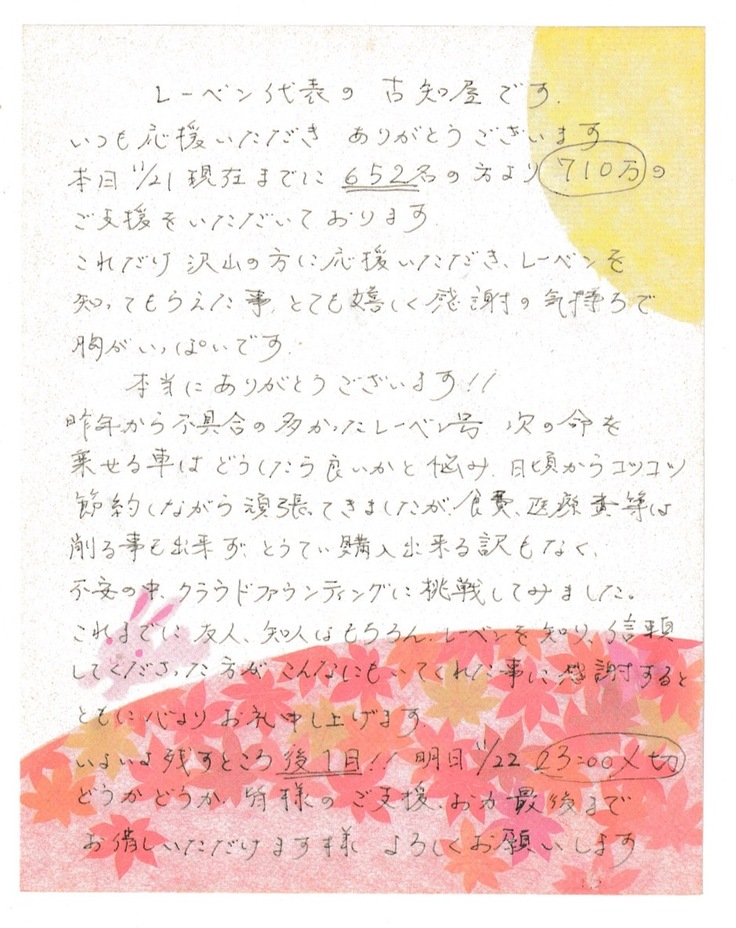 レーベン代表の 古知屋です.
いつも応援いただき ありがとうございます
本日 11/21 現在までに 652名の方より 710万の
ご支援をいただいております.
これだけ 沢山の方に応援いただき、レーベンを
知ってもらえた事、とても嬉しく感謝の気持ちで
胸がいっぱいです.
本当にありがとうございます!!
昨年から不具合の多かったレーベン号 次の命を
乗せる車は どうしたら良いかと悩み、日頃からコツコツ
節約しながら頑張ってきましたが、食費、医療費等は
削る事も出来ず、とうてい購入出来る訳もなく、
不安の中、クラウドファウンティングに挑戦してみました。
これまでに 友人、知人はもちろん、レーベンを知り、信頼
してくださった方が こんなにもいてくれた事に感謝すると
ともに心より お礼申し上げます.
いよいよ残すところ 後1日!! 明日 11/22 23:00〆切
どうかどうか、皆様の ご支援、お力 最後まで
お借しいただけます様 よろしくお願いします